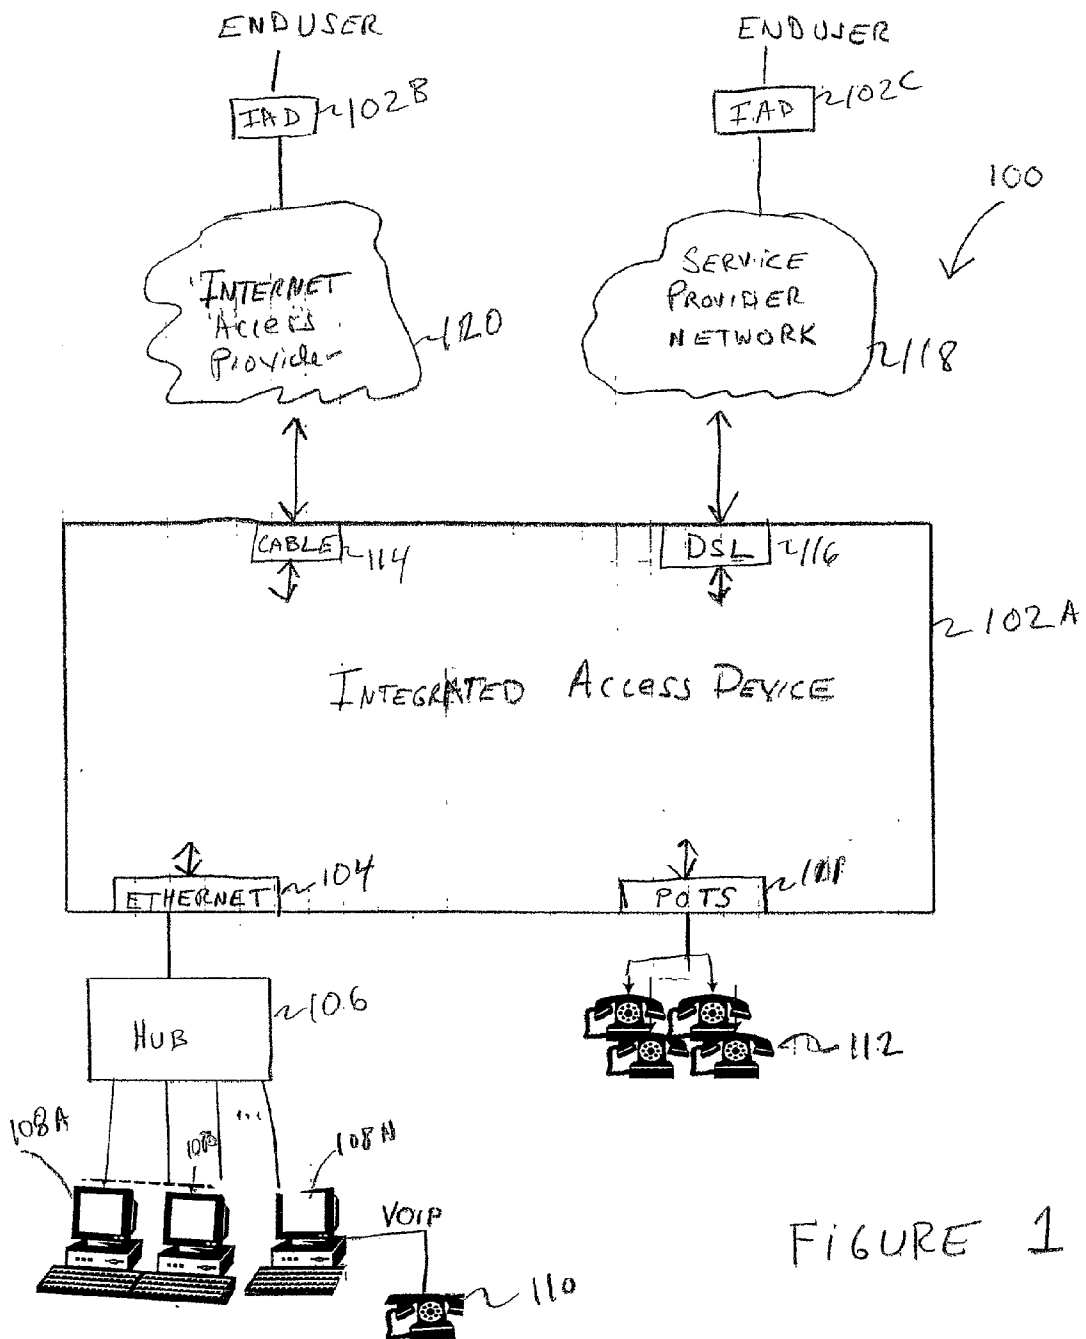 END USER
END USER
IAD
102B
IAD
102C
100
INTERNET
Access
Provider
120
SERVICE
PROVIDER
NETWORK
118
CABLE
114
DSL
116
102A
INTEGRATED ACCESS DEVICE
ETHERNET
104
POTS
HUB
106
112
...
108A
108N
VOIP
110
FIGURE 1